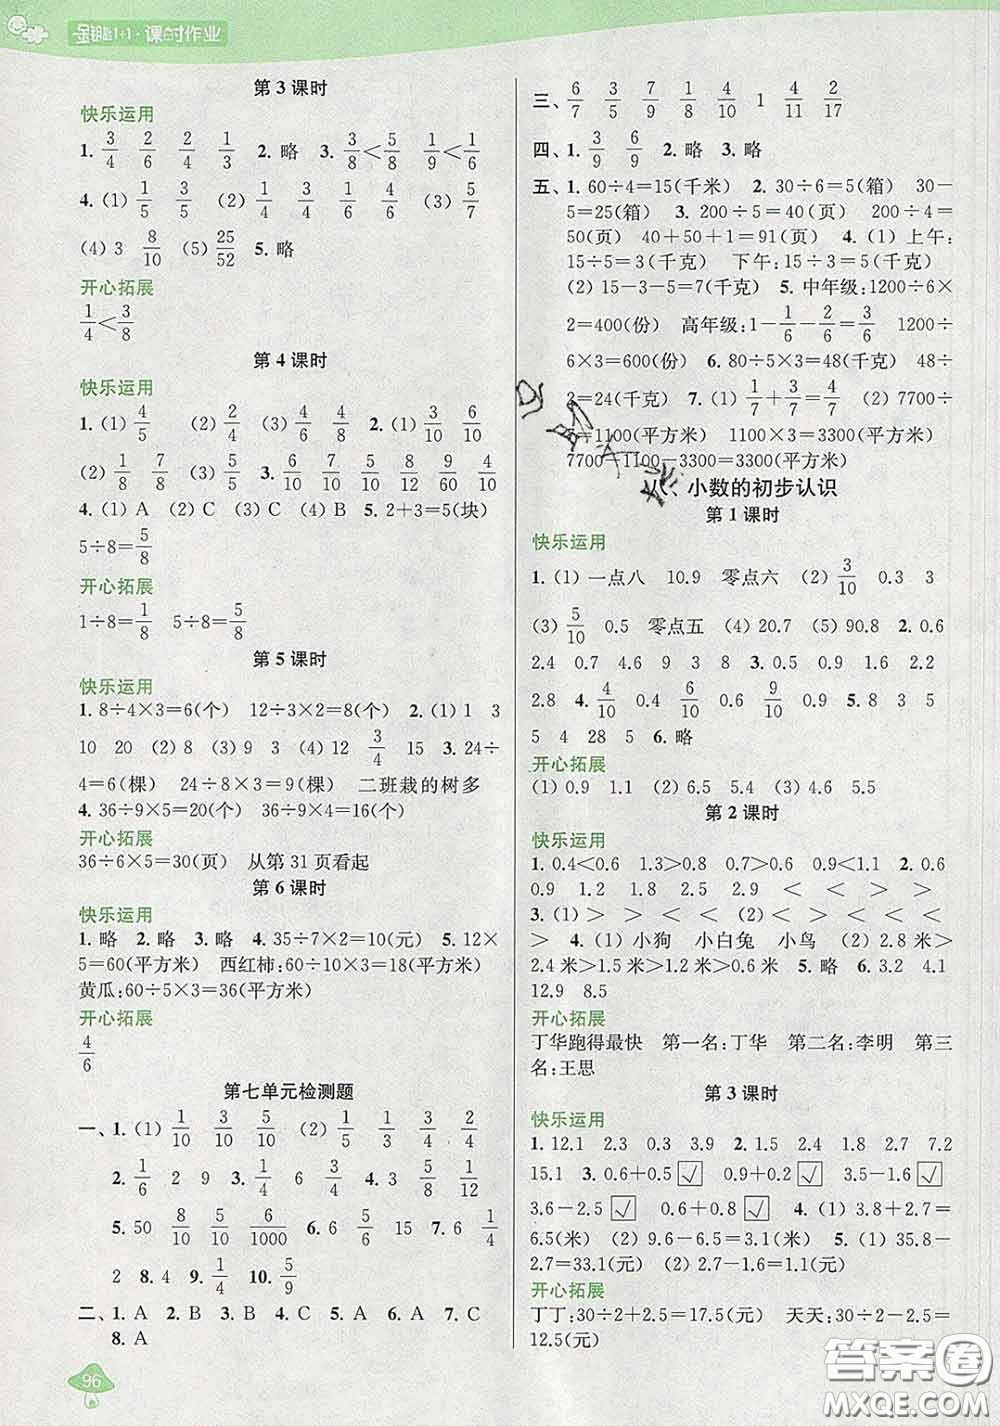 金钥匙1+1·课时作业
第3课时
快乐运用
1. 3/4 2/6 2/4 1/3 2. 略 3. 3/8<5/8 1/9<1/6
4. (1) 1/5 3/5 (2) 1/4 3/4 1/4 3/4 (3) 5/7
(4) 3 8/10 (5) 25/52 5. 略
开心拓展
1/4<3/8
第4课时
快乐运用
1. (1) 4/5 (2) 2/4 (3) 4/6 4/8 2. (1) 3/10 6/10
(2) 1/8 7/8 (3) 5/5 3. 6/8 5/8 4/8 4/8 2/8
4. (1) A (2) C (3) C (4) B 5. 2+3=5(块)
5÷8=5/8
开心拓展
1÷8=1/8 5÷8=5/8
第5课时
快乐运用
1. 8÷4×3=6(个) 12÷3×2=8(个) 2. (1) 1 3
10 20 (2) 8 (3) 9 3 (4) 12 3/4 15 3. 24÷
4=6(棵) 24÷8×3=9(棵) 二班栽的树多
4. 36÷9×5=20(个) 36÷9×3=12(个)
开心拓展
36÷6×5=30(页) 从第31页看起
第6课时
快乐运用
1. 略 2. 略 3. 略 4. 35÷7×2=10(元) 5. 12×
5=60(平方米) 西红柿:60÷10×3=18(平方米)
黄瓜:60÷5×3=36(平方米)
开心拓展
4/6
第七单元检测题
一、1. (1) 1/10 3/10 5/10 (2) 1/5 3/4 3/4 2/4
2. 1/6 2 9 3. 1/4 6 3/4 4. 5/8 3/12
5. 50 8/10 5/10 6/1000 6. 6 5/6 15 7. 6 1/4
2 8. 4 9. 1/4 10. 5/9
二、1. A 2. B 3. B 4. C 5. A 6. A 7. C
8. A
96
三、6/7 3/5 7/9 1/8 4/10 1 4/11 2/17
四、1. 3/9 6/9 2. 略 3. 略
五、1. 60÷4=15(千米) 2. 30÷6=5(箱) 30-
5=25(箱) 3. 200÷5=40(页) 200÷4=
50(页) 40+50+1=91(页) 4. (1) 上午:
15÷5=3(千克) 下午:15÷3=5(千克)
(2) 15-3-5=7(千克) 5. 中年级:1200÷6×
2=400(份) 高年级:1-1/6-2/6=3/6 1200÷
6×3=600(份) 6. 80÷5×3=48(千克) 48÷
2=24(千克) 7. (1) 1/7+3/7=4/7 (2) 7700÷
=1100(平方米) 1100×3=3300(平方米)
7700-1100-3300=3300(平方米)
八、小数的初步认识
第1课时
快乐运用
1. (1) 一点八 10.9 零点六 (2) 3/10 0.3 3
(3) 5/10 0.5 零点五 (4) 20.7 (5) 90.8 2. 0.6
2.4 0.7 4.6 9 3 8 3. 0.6 1.2 1.6
2.8 4. 4/10 0.4 6/10 0.6 9/10 0.9 5. 8 3 5
5 4 28 5 6. 略
开心拓展
(1) 0.9 1.1 (2) 6.5 5.4 (3) 5.5 5.5
第2课时
快乐运用
1. 0.4<0.6 1.3>0.8 0.7>0.6 0.9<1.1 2. 0.6
0.9 1.2 1.8 1.9 2.7 2.9 < < > <
3. (1) > > > > (2) > < < < <
> 4. (1) 小狗 小白兔 小鸟 (2) 2.8米>
2.4米>1.5米>1.2米>0.6米 5. 略 6. 3.2 4.1
12.9 8.5
开心拓展
丁华跑得最快 第一名:丁华 第二名:李明 第三
名:王思
第3课时
快乐运用
1. 12.1 2.3 0.3 3.9 2. 1.5 2.4 1.8 2.7 7.2
15.1 3. 0.6+0.5 √ 0.9+0.2 √ 3.5-1.6 √
3.6-2.5 √ 0.6+0.8 √ 4. (1) 3.8+2.7=
6.5(米) (2) 9.6-6.5=3.1(米) 5. (1) 35.8-
2.7=33.1(元) (2) 2.7-1.6=1.1(元)
开心拓展
丁丁:30÷2+2.5=17.5(元) 天天:30÷2-2.5=
12.5(元)
答案圈
MXQE.COM